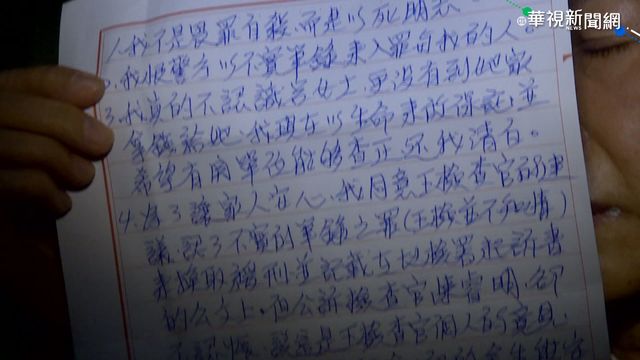 華視新聞網
1.我不是畏罪自殺,而是以死明志
2.我恨警方以不實筆錄來入罪于我的人。
3.我真的不認識呂女士,更沒有到她家
拿錢給她,我現在以生命來做保証,並
希望有關單位能够查正还我清白。
4.為了讓家人安心,我同意王檢查官的建
議,認了不實的筆錄之罪(王檢並不知情)
來換取緩刑並記載于地檢署起訴書
的公文上。但公訴檢查官陳睿明,卻
該案是王檢查官個人的意見,